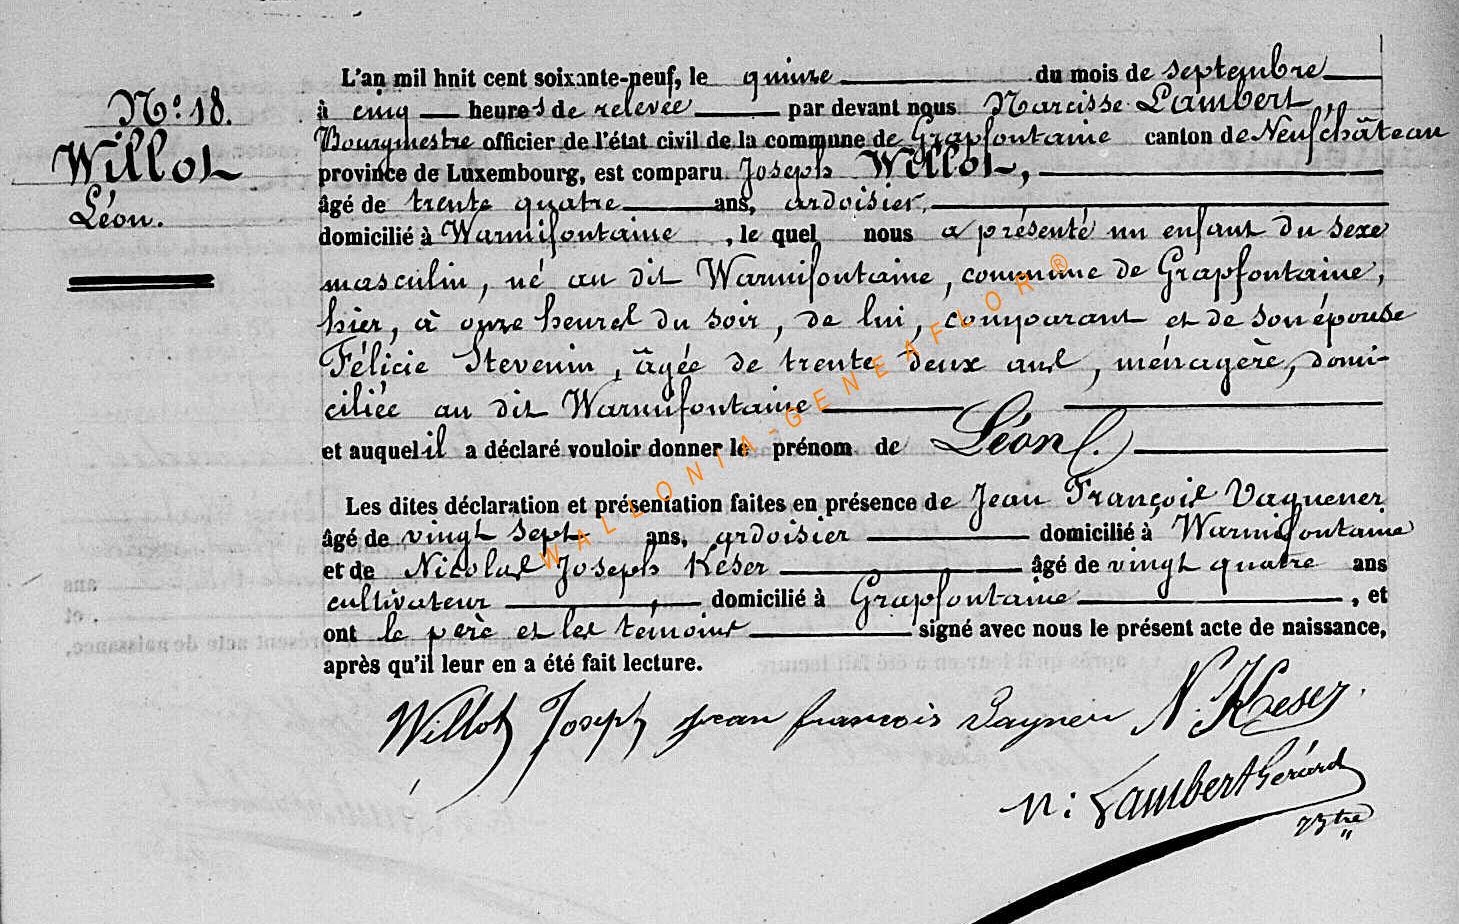 N° 18.
Willot
Léon.
L'an mil huit cent soixante-neuf, le quinze du mois de septembre
à cinq heures de relevée par devant nous Narcisse Lambert,
Bourgmestre officier de l'état civil de la commune de Grapfontaine canton de Neufchâteau
province de Luxembourg, est comparu Joseph Willot,
âgé de trente quatre ans, ardoisier,
domicilié à Warmifontaine, le quel nous a présenté un enfant du sexe
masculin, né au dit Warmifontaine, commune de Grapfontaine,
hier, à onze heures du soir, de lui, comparant et de son épouse
Félicie Stevenin, âgée de trente deux ans, ménagère, domi-
ciliée au dit Warmifontaine
et auquel il a déclaré vouloir donner le prénom de Léon.
Les dites déclaration et présentation faites en présence de Jean François Vaguener
âgé de vingt sept ans, ardoisier domicilié à Warmifontaine
et de Nicolas Joseph Keser âgé de vingt quatre ans
cultivateur, domicilié à Grapfontaine, et
ont le père et les témoins signé avec nous le présent acte de naissance,
après qu'il leur en a été fait lecture.
Willot Joseph jean francois Vagner N. Keser.
N: Lambert Gérard
WALLONIA-GENEAFLOR ®